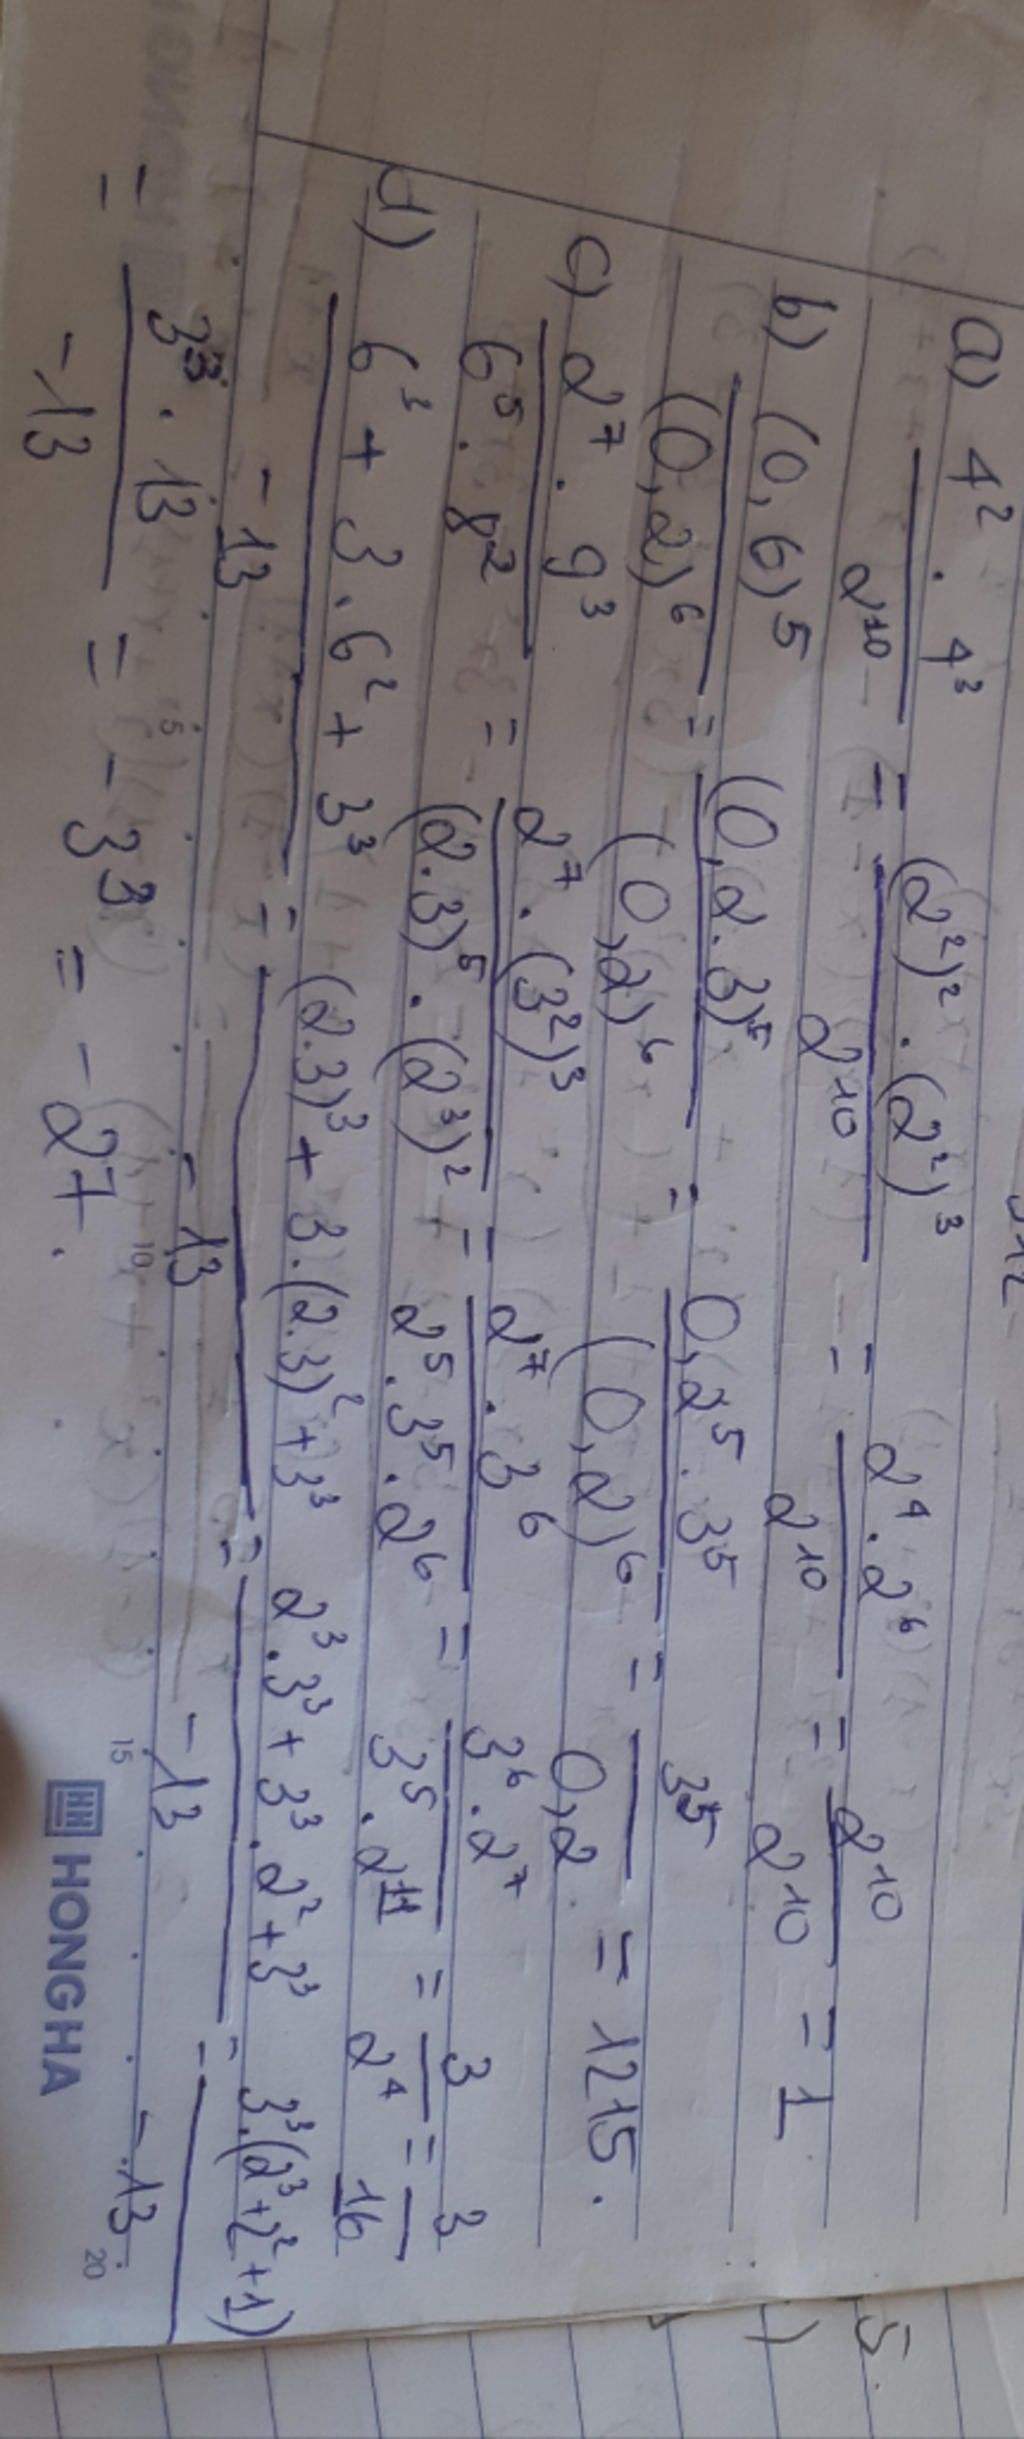 a) 4² . 4³ / 2¹⁰ = (2²)² . (2²)³ / 2¹⁰ = 2⁴ . 2⁶ / 2¹⁰ = 2¹⁰ / 2¹⁰ = 1
b) (0,6)⁵ / (0,2)⁶ = (0,2.3)⁵ / (0,2)⁶ = 0,2⁵ . 3⁵ / (0,2)⁶ = 3⁵ / 0,2 = 1215.
c) 2⁷ . 9³ / 6⁵ . 8² = 2⁷ . (3²)³ / (2.3)⁵ . (2³)² = 2⁷ . 3⁶ / 2⁵ . 3⁵ . 2⁶ = 3⁶ . 2⁷ / 3⁵ . 2¹¹ = 3 / 2⁴ = 3 / 16
d) 6³ + 3 . 6² + 3³ / -13 = (2.3)³ + 3.(2.3)² + 3³ / -13 = 2³.3³ + 3³.2² + 3³ / -13 = 3³.(2³+2²+1) / -13
= 3³ . 13 / -13 = -3³ = -27.
5
10
15
20
HH HONG HA
5.